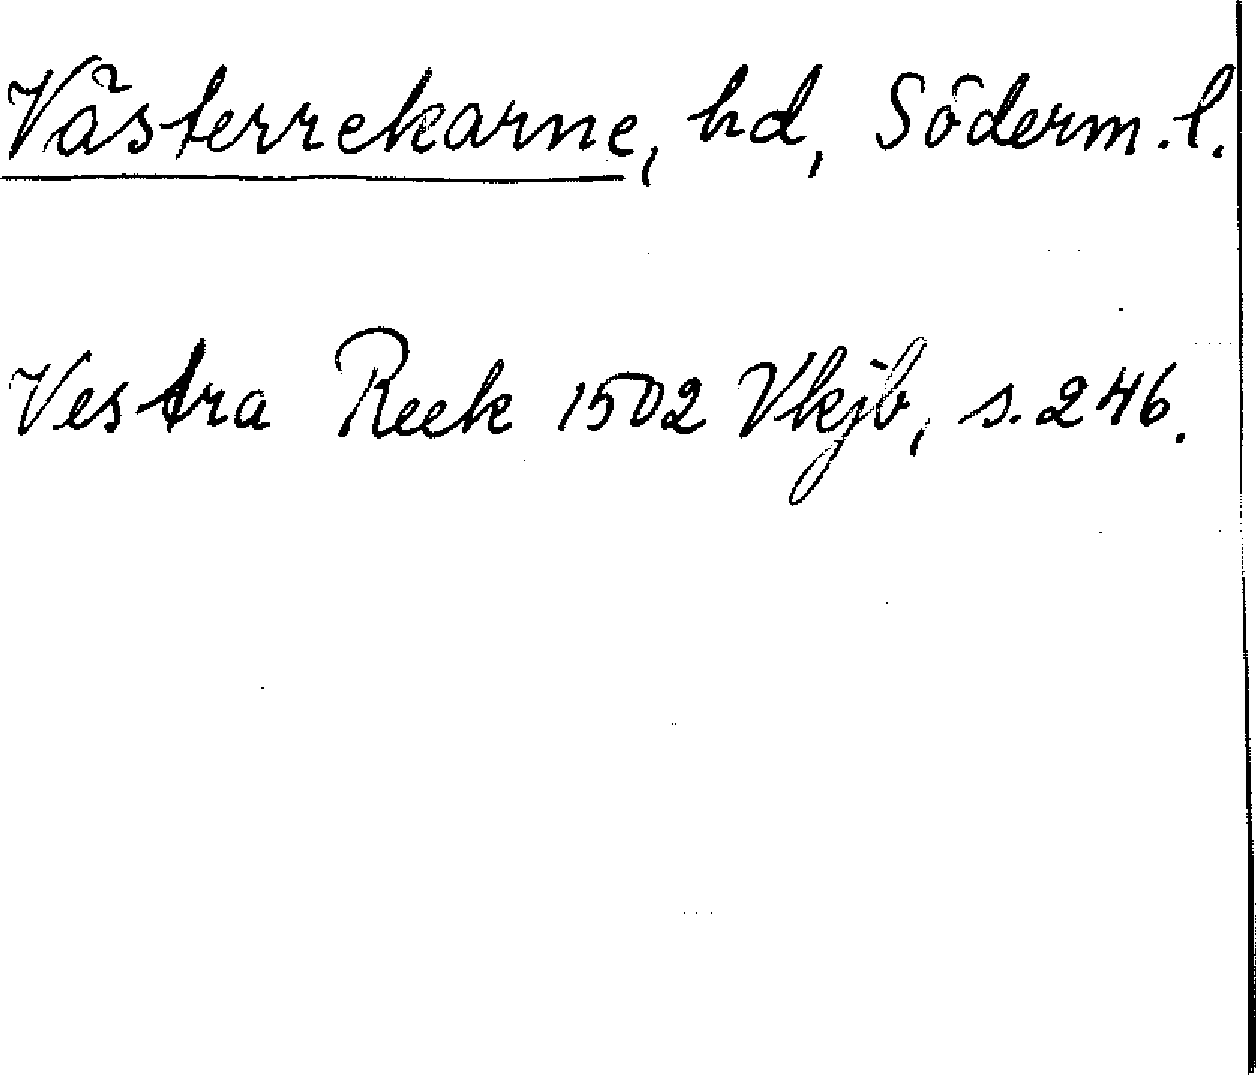 Västerrekarne, hd, Söderm. l.
Vestra Reek 1502 Vkjb, s. 246.